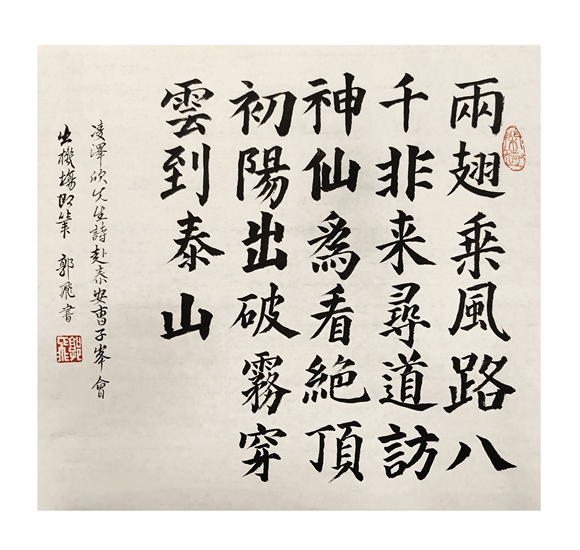 兩翅乘風路八
千非来尋道訪
神仙為看絕頂
初陽出破霧穿
雲到泰山
凌澤欣先生詩赴泰安曹子峯會
出機場即筆 郭飛書